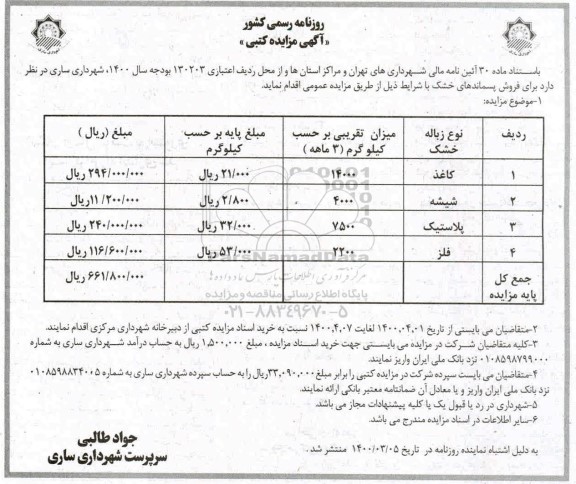 روزنامه رسمی کشور
«آگهی مزایده کتبی»
باستناد ماده ۳۰ آئین نامه مالی شهرداری های تهران و مراکز استان ها و از محل ردیف اعتباری ۱۳۰۲۰۳ بودجه سال ۱۴۰۰، شهرداری ساری در نظر
دارد برای فروش پسماندهای خشک با شرایط ذیل از طریق مزایده عمومی اقدام نماید.
۱-موضوع مزایده:
ردیف نوع زباله خشک میزان تقریبی بر حسب کیلو گرم (۳ ماهه) مبلغ پایه بر حسب کیلوگرم مبلغ (ریال)
۱ کاغذ ۱۴۰۰۰ ۲۱/۰۰۰ ریال ۲۹۴/۰۰۰/۰۰۰ ریال
۲ شیشه ۴۰۰۰ ۲/۸۰۰ ریال ۱۱/۲۰۰/۰۰۰ ریال
۳ پلاستیک ۷۵۰۰ ۳۲/۰۰۰ ریال ۲۴۰/۰۰۰/۰۰۰ ریال
۴ فلز ۲۲۰۰ ۵۳/۰۰۰ ریال ۱۱۶/۶۰۰/۰۰۰ ریال
جمع کل پایه مزایده ۶۶۱/۸۰۰/۰۰۰ ریال
ParsNamadData
مرکز فرآوری اطلاعات پارس نماد داده ها
پایگاه اطلاع رسانی مناقصه و مزایده
۰۲۱-۸۸۳۴۹۶۷۰-۵
۲-متقاضیان می بایستی از تاریخ ۱۴۰۰,۰۴,۰۱ لغایت ۱۴۰۰,۴,۰۷ نسبت به خرید اسناد مزایده کتبی از دبیرخانه شهرداری مرکزی اقدام نمایند.
۳-کلیه متقاضیان شرکت در مزایده می بایستی جهت خرید اسناد مزایده ، مبلغ ۱,۵۰۰,۰۰۰ ریال به حساب درآمد شهرداری ساری به شماره
۰۱۰۸۵۹۸۷۹۹۰۰۰ نزد بانک ملی ایران واریز نمایند.
۴-متقاضیان می بایست سپرده شرکت در مزایده کتبی را برابر مبلغ ۳۳,۰۹۰,۰۰۰ریال را به حساب سپرده شهرداری ساری به شماره ۰۱۰۸۵۹۸۸۳۴۰۰۵
نزد بانک ملی ایران واریز و یا معادل آن ضمانتنامه معتبر بانکی ارائه نمایند.
۵-شهرداری در رد یا قبول یک یا کلیه پیشنهادات مجاز می باشد.
۶-سایر اطلاعات در اسناد مزایده مندرج می باشد.
جواد طالبی
سرپرست شهرداری ساری
به دلیل اشتباه نماینده روزنامه در تاریخ ۱۴۰۰/۰۳/۰۵ منتشر شد .